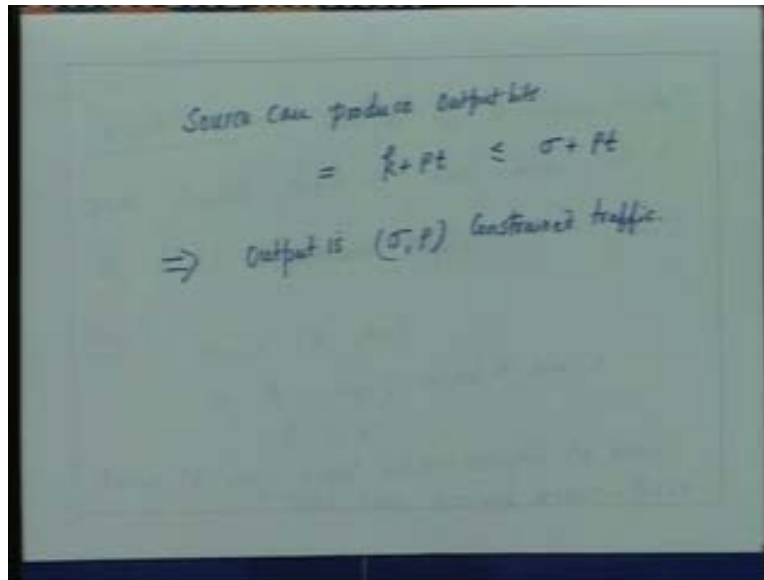 Source can produce output bits
= k + ρt ≤ σ + ρt
⇒ Output is (σ, ρ) Constrained traffic.